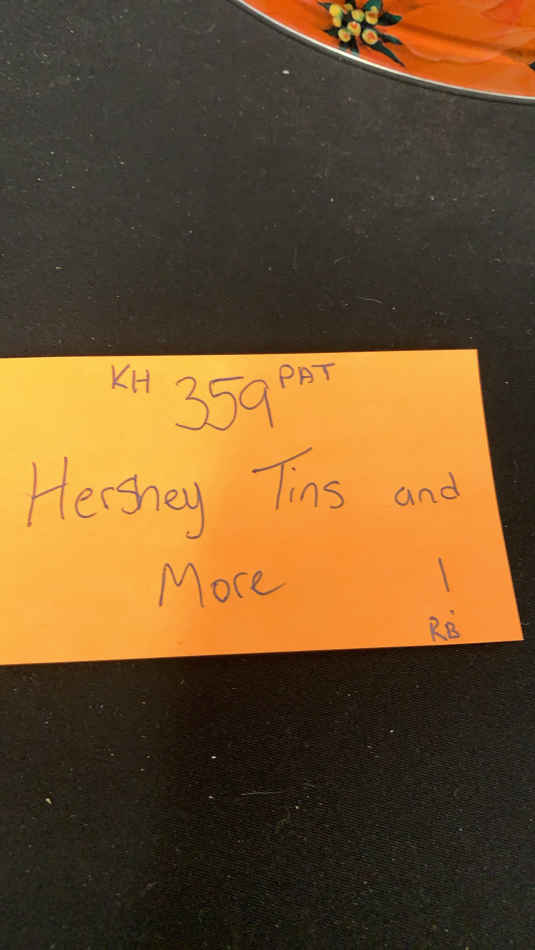 KH 359 PAT
Hershey Tins and
More 1
RB